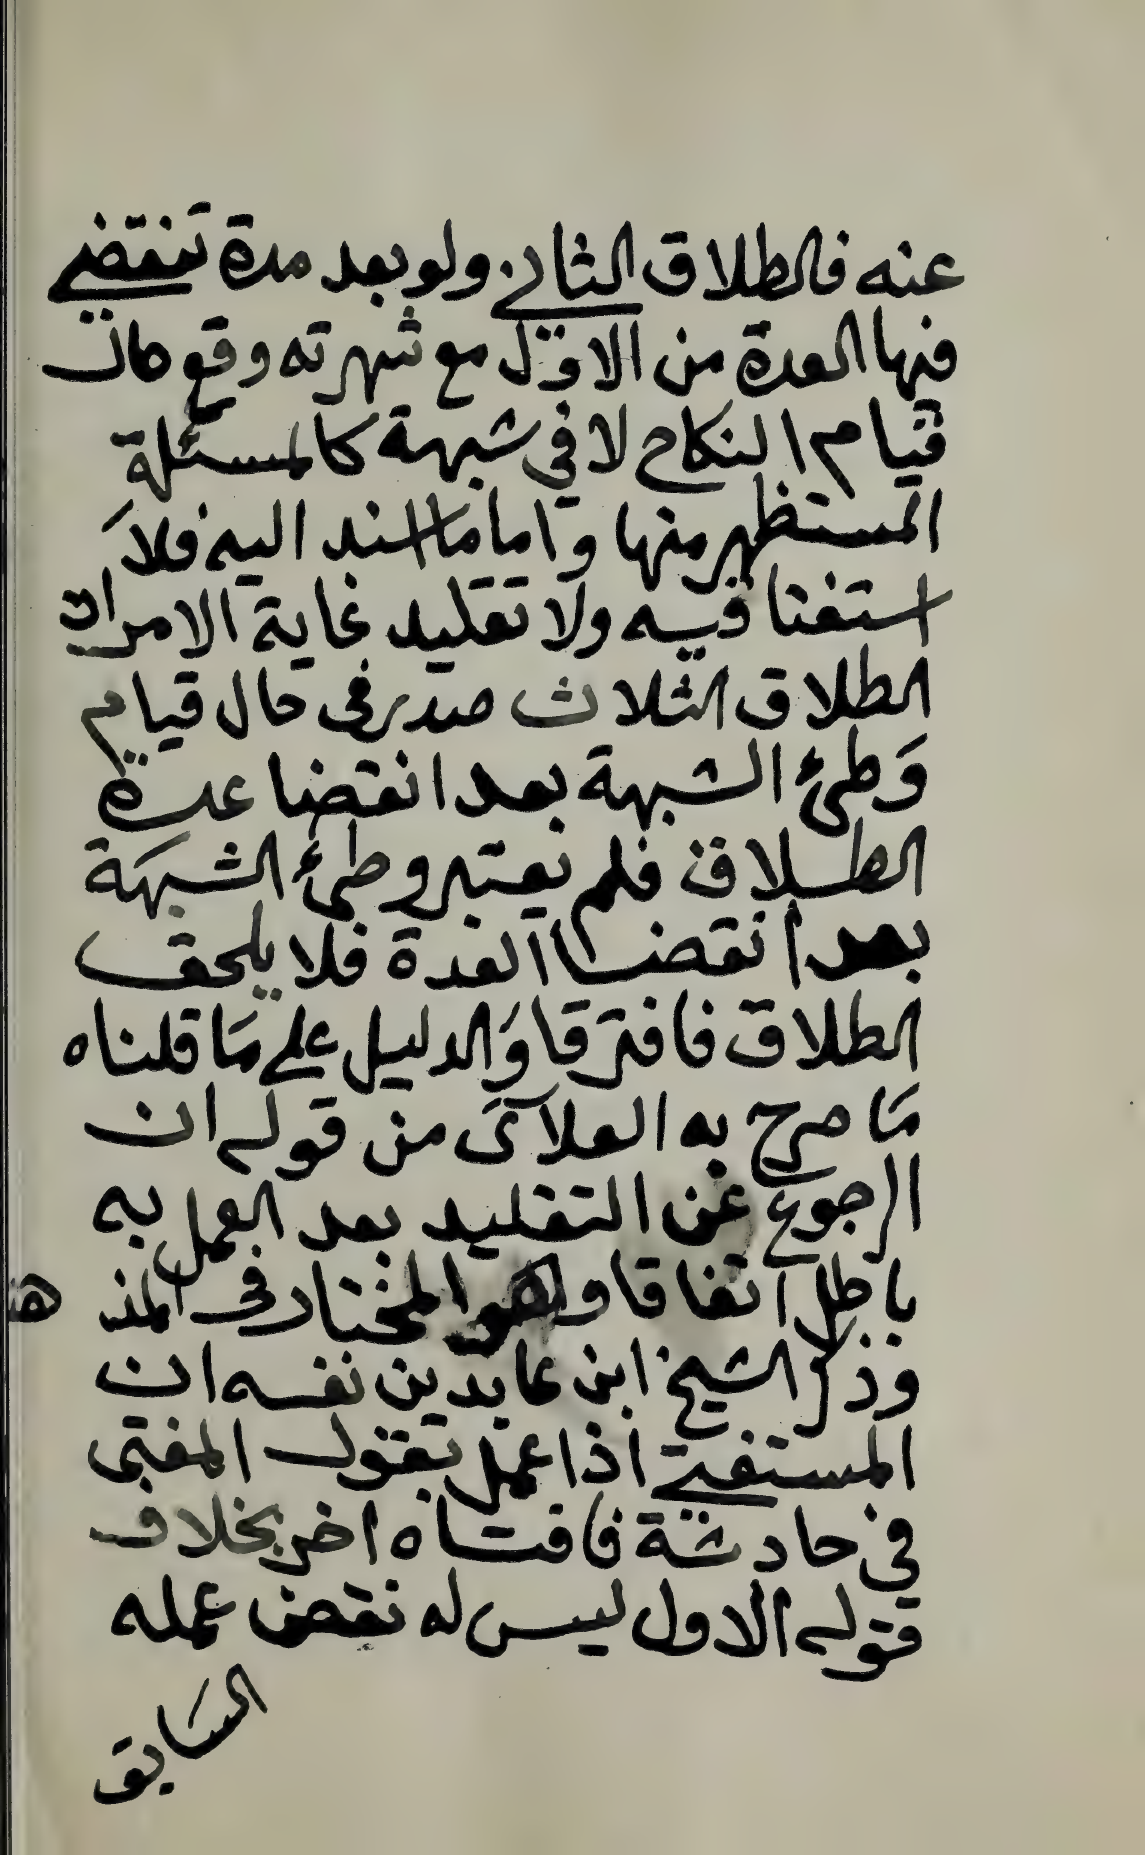 عنه فالطلاق الثاني ولو بعد مدة تنقضي
فيها العدة من الاول مع شهرته وقع حال
قيام النكاح لا في شبهة كالمسئلة
المستظهر منها واما ما اسند اليه فلا
استفتا فيه ولا تقليد غاية الامر ان
الطلاق الثلاث صدر في حال قيام
وطئ الشبهة بعد انقضا عدة
الطلاق فلم يعتبر وطئ الشبهة
بعد انقضا العدة فلا يلحق
الطلاق فافترقا والدليل علي ما قلناه
ما صرح به العلآئى من قوله ان
الرجوع عن التقليد بعد العمل به
باطل اتفاقا وهو المختار في المذهب
وذكر الشيخ ابن عابدين نفسه ان
المستفتي اذا عمل بقول المفتى
في حادثة فافتاه اخر بخلاف
قوله الاول ليس له نقض عمله
السابق